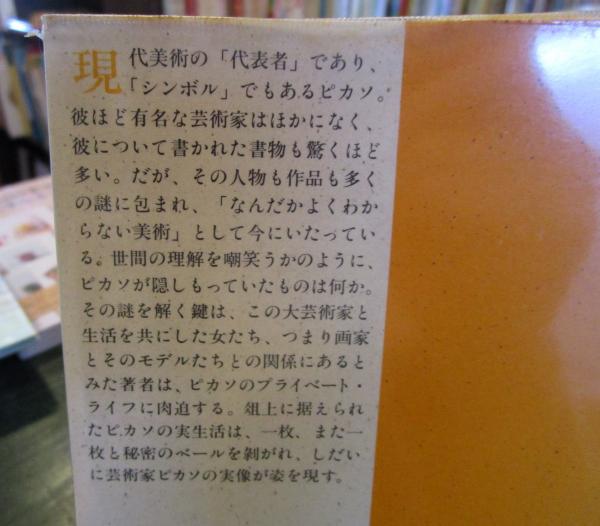 現代美術の「代表者」であり、
「シンボル」でもあるピカソ。
彼ほど有名な芸術家はほかになく、
彼について書かれた書物も驚くほど
多い。だが、その人物も作品も多く
の謎に包まれ、「なんだかよくわか
らない美術」として今にいたってい
る。世間の理解を嘲笑うかのように、
ピカソが隠しもっていたものは何か。
その謎を解く鍵は、この大芸術家と
生活を共にした女たち、つまり画家
とそのモデルたちとの関係にあると
みた著者は、ピカソのプライベート・
ライフに肉迫する。俎上に据えられ
たピカソの実生活は、一枚、また一
枚と秘密のベールを剝がれ、しだい
に芸術家ピカソの実像が姿を現す。